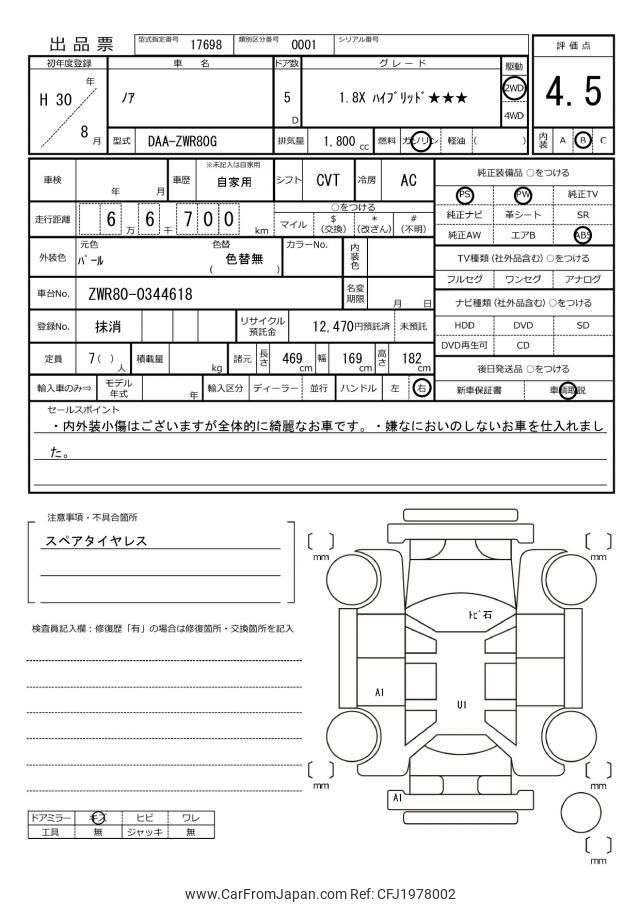 出品票
型式指定番号 17698 類別区分番号 0001 シリアル番号
評価点
4.5
内装 A B C
初年度登録 車名 ドア数 グレード 駆動
H 30 年 / 8 月
ノア
5 D
1.8X ハイブリッド★★★
2WD
4WD
型式 DAA-ZWR80G 排気量 1,800 cc 燃料 ガソリン 軽油 ( )
車検 年 月 車歴 ※未記入は自家用 自家用 シフト CVT 冷房 AC
走行距離 6 万 6 千 7 0 0 km
○をつける
マイル $ (交換) * (改ざん) # (不明)
外装色 元色 パール 色替 ( 色替無 ) カラーNo. 内装色
車台No. ZWR80-0344618 名変期限 月 日
登録No. 抹消 リサイクル預託金 12,470円預託済 未預託
定員 7( )人 積載量 kg 諸元 長さ 469 cm 幅 169 cm 高さ 182 cm
輸入車のみ⇒ モデル年式 年 輸入区分 ディーラー 並行 ハンドル 左 右
純正装備品 ○をつける
PS PW 純正TV
純正ナビ 革シート SR
純正AW エアB ABS
TV種類 (社外品含む) ○をつける
フルセグ ワンセグ アナログ
ナビ種類 (社外品含む) ○をつける
HDD DVD SD
DVD再生可 CD
後日発送品 ○をつける
新車保証書 車輌取説
セールスポイント
・内外装小傷はございますが全体的に綺麗なお車です。・嫌なにおいのしないお車を仕入れまし
た。
注意事項・不具合箇所
スペアタイヤレス
検査員記入欄：修復歴「有」の場合は修復箇所・交換箇所を記入
ドアミラー キズ ヒビ ワレ
工具 無 ジャッキ 無
mm
mm
トビ石
A1
U1
A1
mm
mm
mm
www.CarFromJapan.com Ref: CFJ1978002